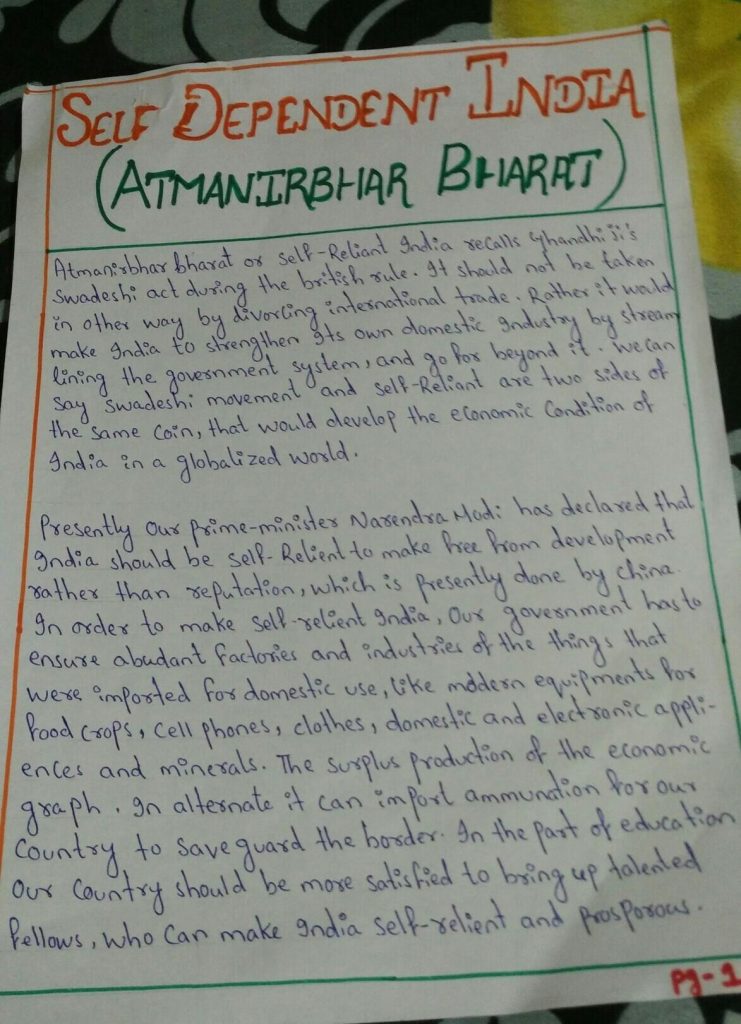 SELF DEPENDENT INDIA
(ATMANIRBHAR BHARAT)
Atmanirbhar bharat or self-Reliant India recalls Ghandhi ji's
Swadeshi act during the british rule. It should not be taken
in other way by divorcing international trade. Rather it would
make India to strengthen Its own domestic Industry by stream
lining the government system, and go for beyond it. We can
say swadeshi movement and self-Reliant are two sides of
the same coin, that would develop the economic Condition of
India in a globalized world.
Presently our prime-minister Narendra Modi has declared that
India should be self-Relient to make free from development
rather than reputation, which is presently done by China.
In order to make self-relient India, Our government has to
ensure abudant factories and industries of the things that
were imported for domestic use, like modern equipments for
food crops, cell phones, clothes, domestic and electronic appli-
ences and minerals. The surplus production of the economic
graph. In alternate it can import ammunation for our
Country to save guard the border. In the part of education
Our Country should be more satisfied to bring up talented
fellows, who can make India self-relient and prosporous.
Pg-1